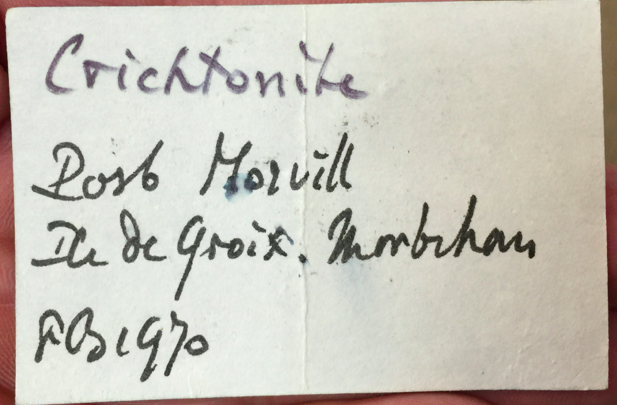 Crichtonite
Port Morvill
Ile de Groix. Morbihan
FB 1970